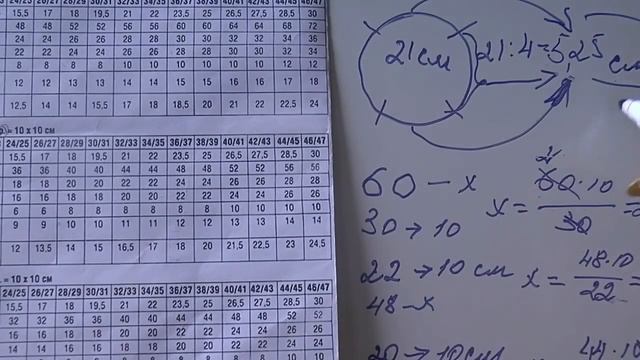 24/25 26/27 28/29 30/31 32/33 34/35 36/37 38/39 40/41 42/43 44/45 46/47
15,5 17 18 19,5 21 22 23,5 25 26,5 27,5 28,5 30
48 48 52 52 56 56 60 60 64 64 68 72
24 24 26 26 28 28 30 30 32 32 34 36
24 24 26 26 28 28 30 30 32 32 34
8 8 8 8 10 10 10 10 10 10 12 12
12 12 13 13 14 14 15 16 16 16 17 18
12,5 14 14 15,5 17 18 18,5 20 21 22 22,5 24
= 10 x 10 см
24/25 26/27 28/29 30/31 32/33 34/35 36/37 38/39 40/41 42/43 44/45 46/47
15,5 17 18 19,5 21 22 23,5 25 26,5 27,5 28,5 30
36 36 40 40 44 44 48 48 52 52 56 56
18 18 20 20 22 22 24 24 26 26 28 28
16 16 18 18 20 20 22 22 24 24 26 26
6 6 8 8 8 8 8 8 10 10 10 10
9 9 10 10 11 11 12 12 13 13 14 14
12 13,5 14 15 16,5 17 18 20 21,5 22,5 23 24,5
= 10 x 10 см
24/25 26/27 28/29 30/31 32/33 34/35 36/37 38/39 40/41 42/43 44/45 46/47
15,5 17 18 19,5 21 22 23,5 25 26,5 27,5 28,5 30
32 32 36 36 40 40 44 44 48 48 52 52
16 16 18 18 20 20 22 22 24 24 26 26
14 14 16 16 18 18 20 20 22 22 24 24
21 см 21:4=5,25 см
60 – x x = 60·10 / 30 =
30 → 10
22 → 10 см x = 48·10 / 22 =
48 – x
20 → 10 см